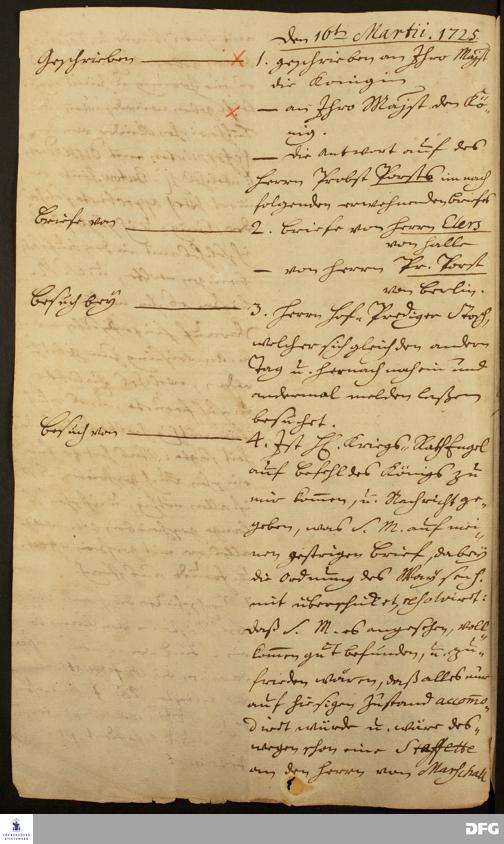 den 10ten Martii. 1725
Geschrieben
1. geschrieben an Ihro Mayst
die Königin
— an Ihro Mayst. den Kö-
nig.
— die Antwort auf des
Herrn Probst Porsts im nach
folgenden erwehnenden briefe
Briefe von
2. briefe von Herrn Elers
von Halle
— von Herrn Pr. Porst
von Berlin.
Besuch bey
3. Herrn Hof-Prediger Stosch,
welcher sich gleich den andern
Tag u. hernach noch ein und
andermal melden laßen
besuchet.
Besuch von
4. Ist H. Kriegs-Rath Engel
auf befehl des Königs zu
mir kommen, u. Nachricht ge-
geben, was S. M. auf mei-
nen gestrigen brief, dabey
die Ordnung des Waysenh.
mit überschicket, resolviret:
daß S. M. es angesehen, voll-
kommen gut befunden, u. zu-
frieden wären, daß alles nur
auf hiesigen Zustand accommo-
diret würde u. wäre des-
wegen schon eine Staffette
an den Herrn von Marschall
FRANCKESCHE
STIFTUNGEN
DFG